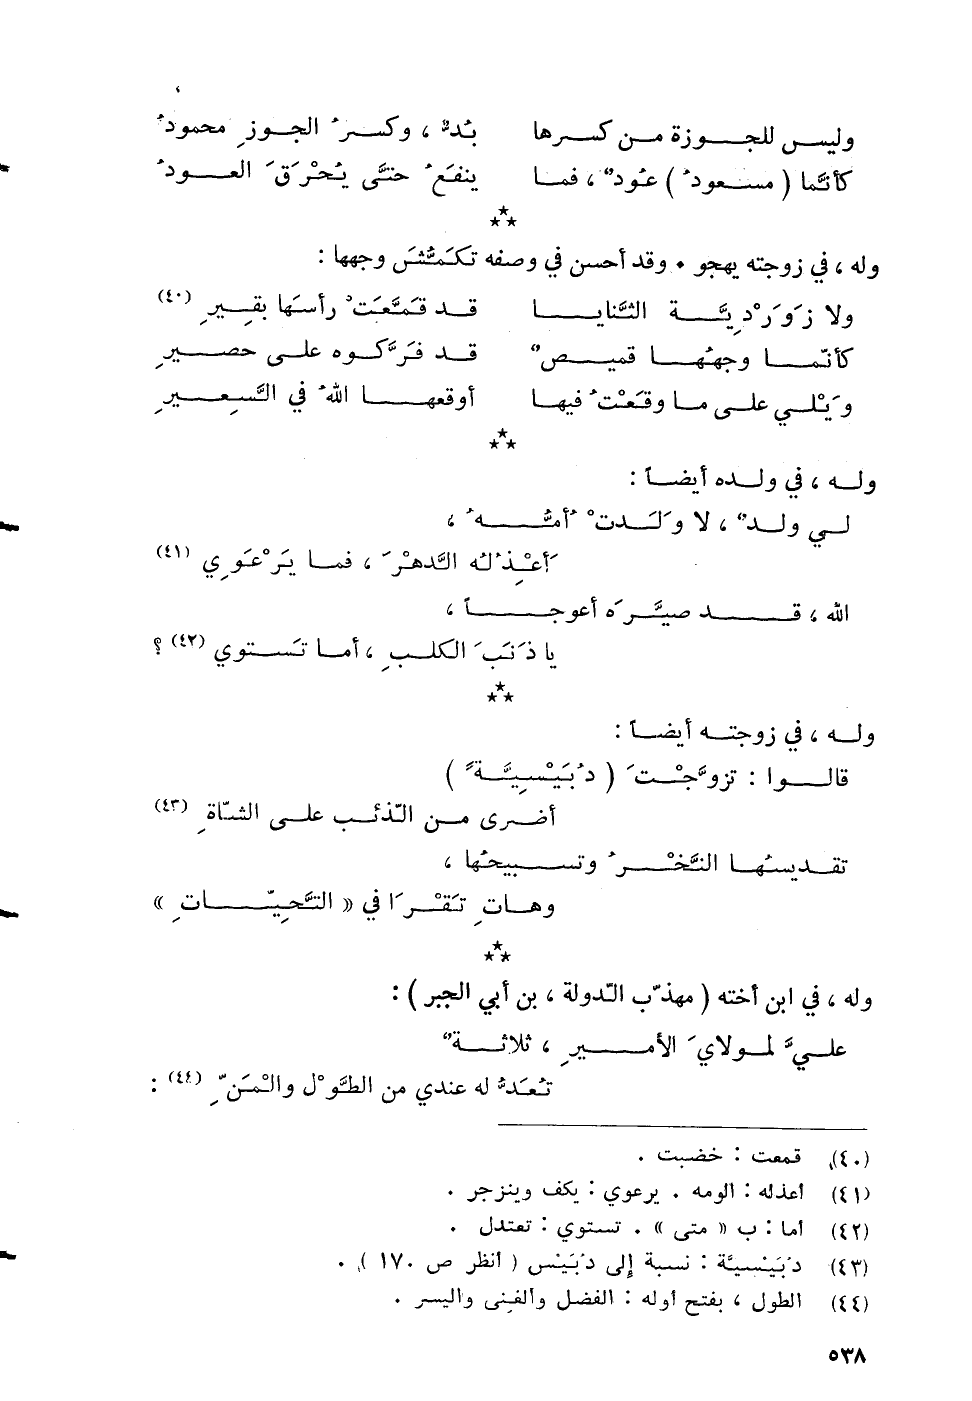 وليس للجوزة من كسرها بُدٌّ ، وكسرُ الجوزِ محمودُ
كأنَّما ( مسعودُ ) عُودٌ ، فما ينفَعُ حتَّى يُحْرَقَ العودُ
***
وله ، في زوجته يهجو . وقد أحسن في وصفه تكَمُّشَ وجهها :
ولا زَوَرْدِيَّة الثَّنايا قد قَمَّعَتْ رأسَها بقِيرِ (٤٠)
كأنّما وجهُها قميصٌ قد فرَّكوه على حصيرِ
وَيْلي على ما وقَعْتُ فيها أوقعها اللهُ في السَّعيرِ
***
وله ، في ولده أيضاً :
لي ولدٌ ، لا وَلَدتْ أُمُّهُ ،
أَعْذِلُه الدَّهْرَ ، فما يَرْعَوِي (٤١)
الله ، قد صيَّرَه أعوجاً ،
يا ذَنَبَ الكلبِ ، أما تَستوي (٤٢) ؟
***
وله ، في زوجته أيضاً :
قالوا : تزوَّجْتَ ( دُبَيْسِيَّةً )
أضرى من الذّئب على الشّاةِ (٤٣)
تقديسُها النَّخْرُ وتسبيحُها ،
وهاتِ تَقْرَا في « التَّحِيّاتِ »
***
وله ، في ابن أخته ( مهذّب الدّولة ، بن أبي الجبر ) :
عليَّ لمولايَ الأميرِ ، ثلاثةٌ
تُعَدُّ له عندي من الطَّوْل والمْنِّ (٤٤) :
(٤٠) قمعت : خضبت .
(٤١) أعذله : ألومه . يرعوي : يكف وينزجر .
(٤٢) أما : ب « متى » . تستوي : تعتدل .
(٤٣) دُبَيْسيَّة : نسبة إلى دُبَيْس ( أنظر ص ١٧٠ ) .
(٤٤) الطول ، بفتح أوله : الفضل والغنى واليسر .
٥٣٨